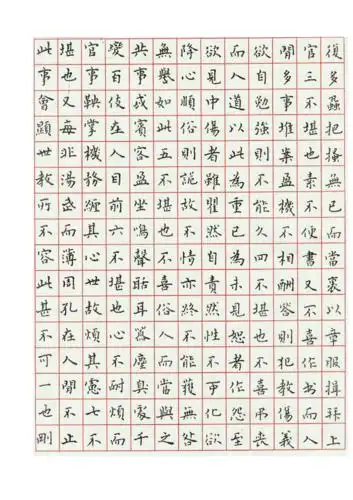 復多虱把搔無已而當裹以章服揖拜上
官三不堪也素不便書又不喜作書而人
閒多事堆案盈機不相酬答則犯教傷義
欲自勉強則不能久四不堪也不喜弔喪
而人道以此為重已為未見恕者所怨至
欲見中傷者雖瞿然自責然性不可化欲
降心順俗則詭故不情亦終不能獲無咎
無譽如此五不堪也不喜俗人而當與之
共事或賓客盈坐鳴聲聒耳囂塵臭處千
變百伎在人目前六不堪也心不耐煩而
官事鞅掌機務纏其心世故煩其慮七不
堪也又每非湯武而薄周孔在人閒不止
此事會顯世教所不容此甚不可一也剛